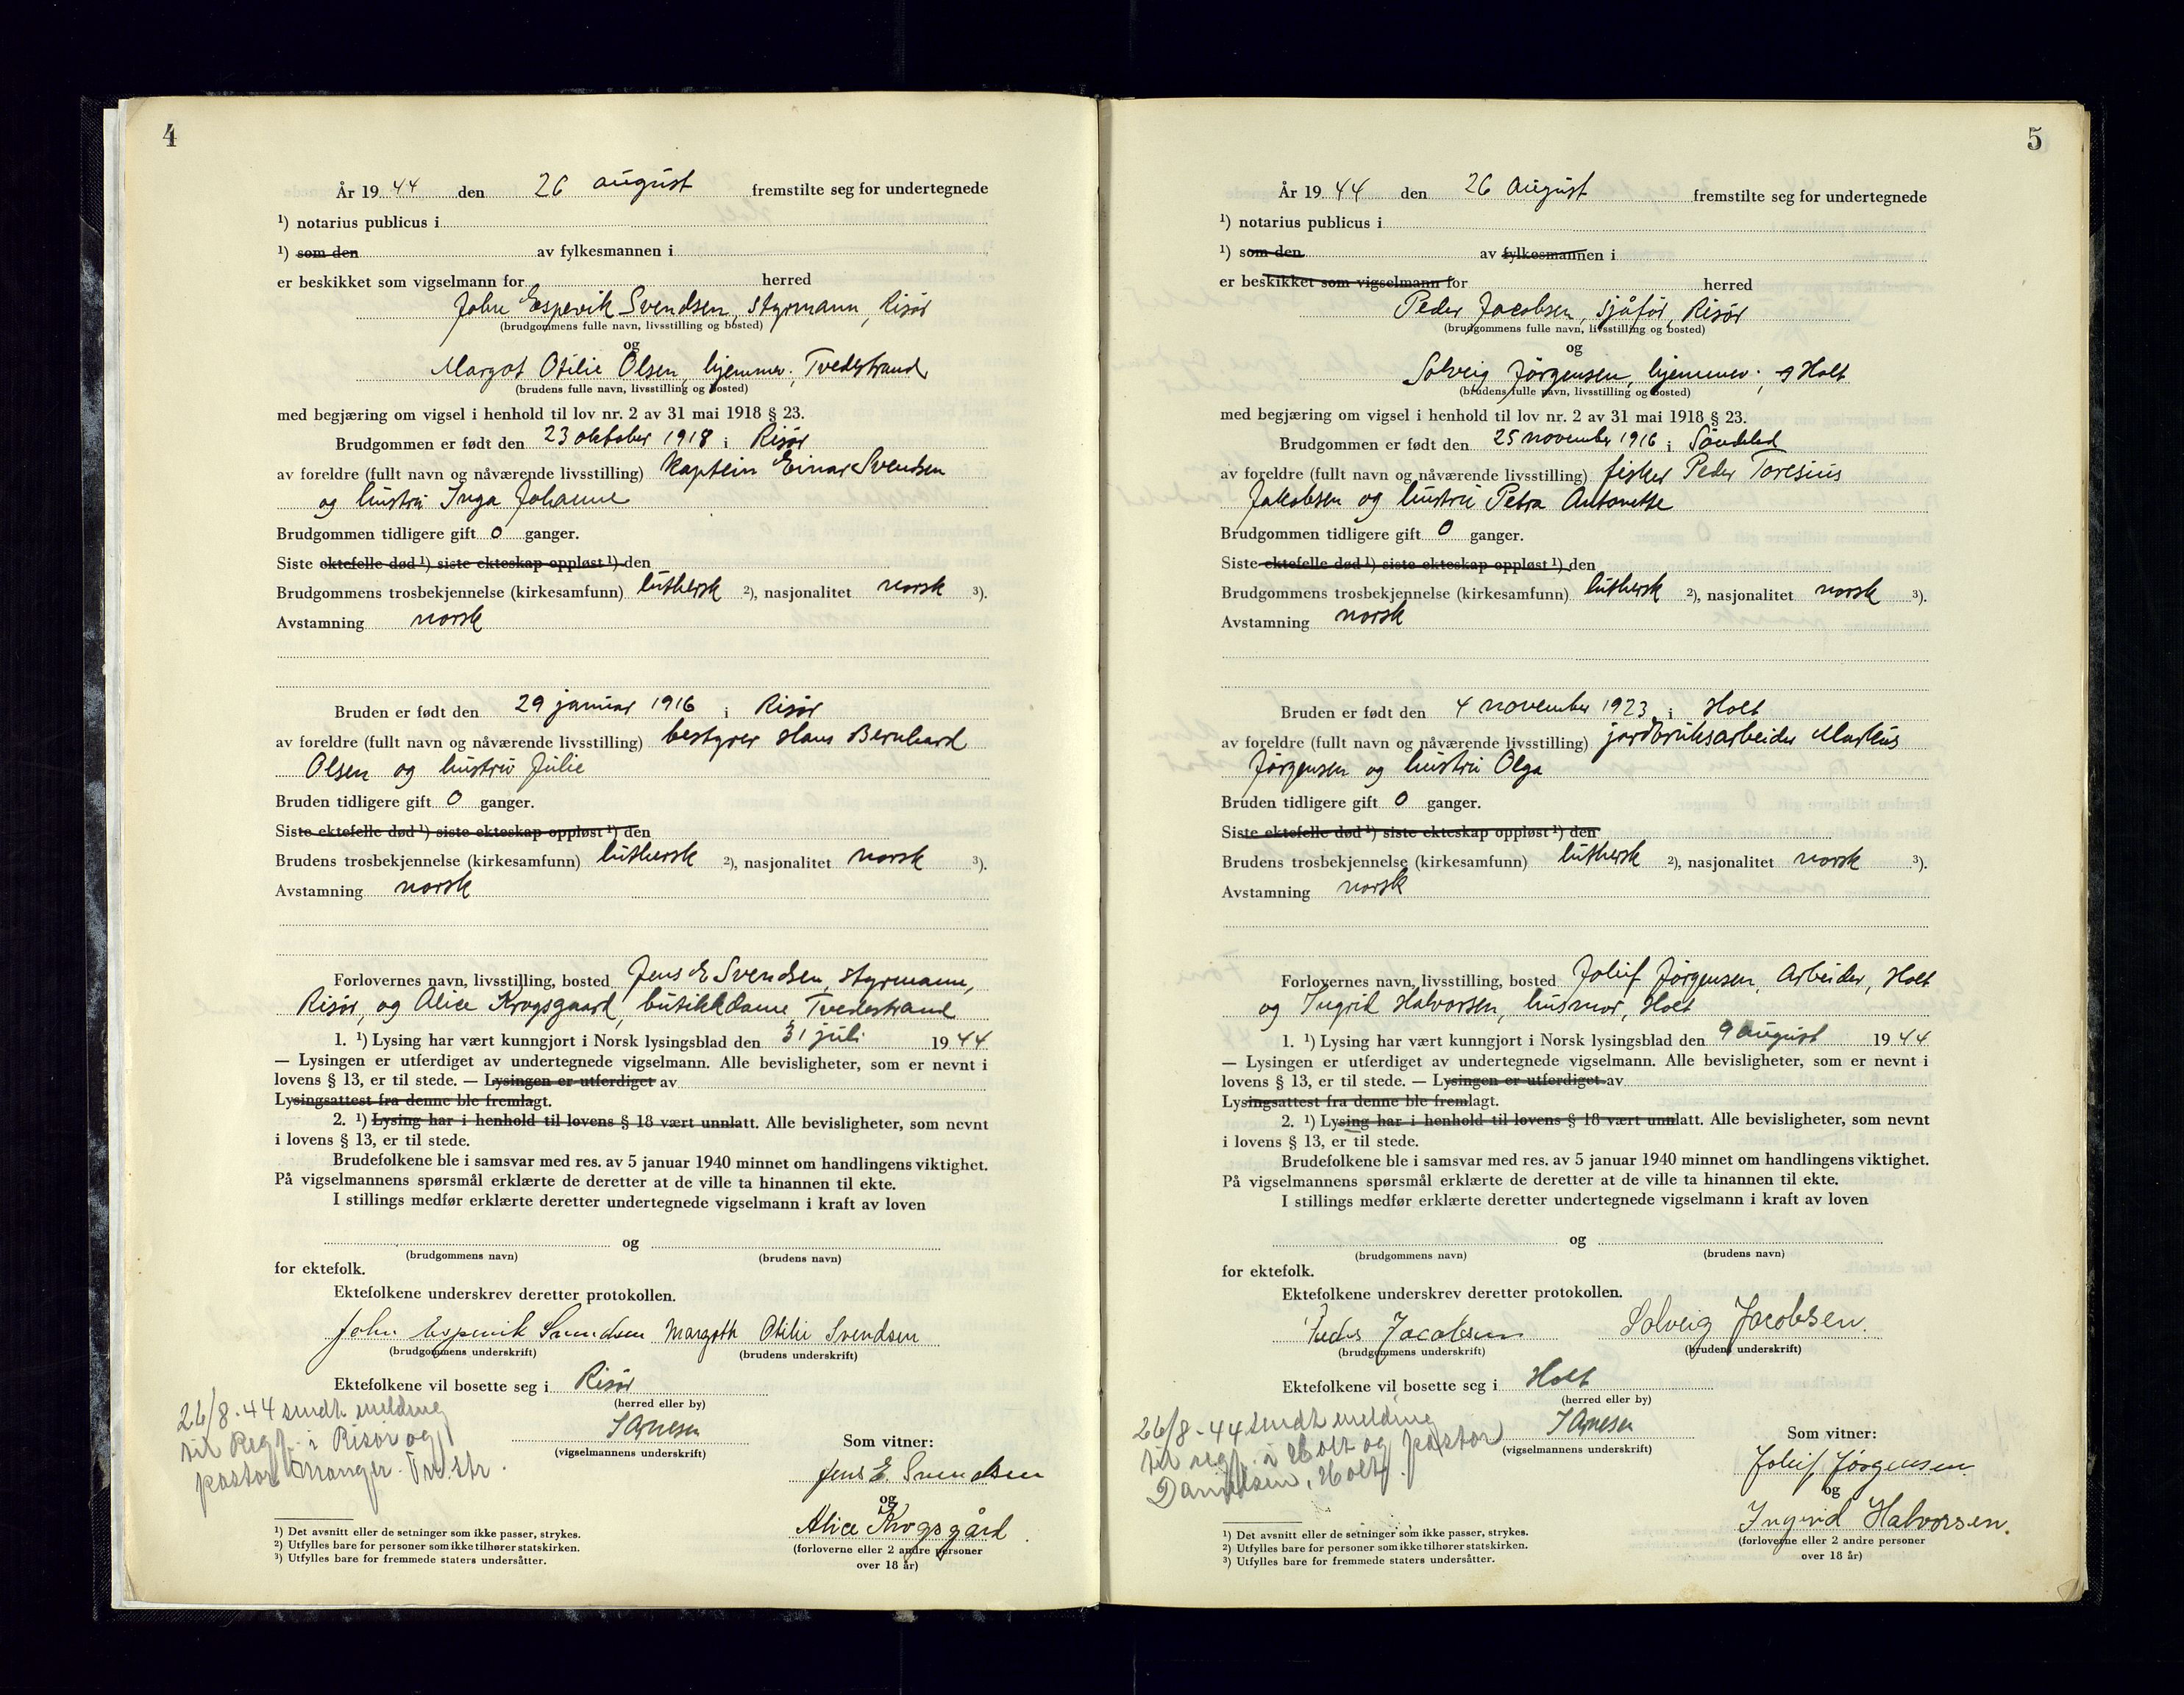 4
År 19 44 den 26 august fremstilte seg for undertegnede
¹) notarius publicus i
¹) som den av fylkesmannen i
er beskikket som vigselmann for herred
John Espevik Svendsen, styrmann, Risør
(brudgommens fulle navn, livsstilling og bosted)
og
Margot Otilie Olsen, hjemmev., Tvedestrand
(brudens fulle navn, livsstilling og bosted)
med begjæring om vigsel i henhold til lov nr. 2 av 31 mai 1918 § 23.
Brudgommen er født den 23 oktober 1918 i Risør
av foreldre (fullt navn og nåværende livsstilling) Kaptein Einar Svendsen
og hustru Inga Johanne
Brudgommen tidligere gift 0 ganger.
Siste ektefelle død ¹) siste ekteskap oppløst ¹) den
Brudgommens trosbekjennelse (kirkesamfunn) luthersk ²), nasjonalitet norsk ³).
Avstamning norsk
Bruden er født den 29 januar 1916 i Risør
av foreldre (fullt navn og nåværende livsstilling) bestyrer Hans Bernhard
Olsen og hustru Julie
Bruden tidligere gift 0 ganger.
Siste ektefelle død ¹) siste ekteskap oppløst ¹) den
Brudens trosbekjennelse (kirkesamfunn) luthersk ²), nasjonalitet norsk ³).
Avstamning norsk
Forlovernes navn, livsstilling, bosted Jens E Svendsen, styrmann,
Risør, og Alice Krogsgaard, butikkdame Tvedestrand
1. ¹) Lysing har vært kunngjort i Norsk lysingsblad den 31 juli 19 44
— Lysingen er utferdiget av undertegnede vigselmann. Alle bevisligheter, som er nevnt i
lovens § 13, er til stede. — Lysingen er utferdiget av
Lysingsattest fra denne ble fremlagt.
2. ¹) Lysing har i henhold til lovens § 18 vært unnlatt. Alle bevisligheter, som nevnt
i lovens § 13, er til stede.
Brudefolkene ble i samsvar med res. av 5 januar 1940 minnet om handlingens viktighet.
På vigselmannens spørsmål erklærte de deretter at de ville ta hinannen til ekte.
I stillings medfør erklærte deretter undertegnede vigselmann i kraft av loven
og
(brudgommens navn) (brudens navn)
for ektefolk.
Ektefolkene underskrev deretter protokollen.
John Espevik Svendsen Margoth Otilie Svendsen
(brudgommens underskrift) (brudens underskrift)
Ektefolkene vil bosette seg i Risør
(herred eller by)
26/8-44 sendt melding
til Regf. i Risør og
pastor
(vigselmannens underskrift)
Som vitner:
Jens E. Svendsen
og
Alice Krogsgård
(forloverne eller 2 andre personer
over 18 år)
¹) Det avsnitt eller de setninger som ikke passer, strykes.
²) Utfylles bare for personer som ikke tilhører statskirken.
³) Utfylles bare for fremmede staters undersåtter.
5
År 19 44 den 26 august fremstilte seg for undertegnede
¹) notarius publicus i
¹) som den av fylkesmannen i
er beskikket som vigselmann for herred
Peder Jacobsen, sjåfør, Risør
(brudgommens fulle navn, livsstilling og bosted)
og
Solveig Jørgensen, hjemmev., Holt
(brudens fulle navn, livsstilling og bosted)
med begjæring om vigsel i henhold til lov nr. 2 av 31 mai 1918 § 23.
Brudgommen er født den 25 november 1916 i Søndeled
av foreldre (fullt navn og nåværende livsstilling) fisker Peder Toresius
Jakobsen og hustru Petra Antonette
Brudgommen tidligere gift 0 ganger.
Siste ektefelle død ¹) siste ekteskap oppløst ¹) den
Brudgommens trosbekjennelse (kirkesamfunn) luthersk ²), nasjonalitet norsk ³).
Avstamning norsk
Bruden er født den 4 november 1923 i Holt
av foreldre (fullt navn og nåværende livsstilling) jordbruksarbeider Markus
Jørgensen og hustru Olga
Bruden tidligere gift 0 ganger.
Siste ektefelle død ¹) siste ekteskap oppløst ¹) den
Brudens trosbekjennelse (kirkesamfunn) luthersk ²), nasjonalitet norsk ³).
Avstamning norsk
Forlovernes navn, livsstilling, bosted Joleif Jørgensen, Arbeider, Holt
og Ingrid Halvorsen, husmor, Holt
1. ¹) Lysing har vært kunngjort i Norsk lysingsblad den 9 august 19 44
— Lysingen er utferdiget av undertegnede vigselmann. Alle bevisligheter, som er nevnt i
lovens § 13, er til stede. — Lysingen er utferdiget av
Lysingsattest fra denne ble fremlagt.
2. ¹) Lysing har i henhold til lovens § 18 vært unnlatt. Alle bevisligheter, som nevnt
i lovens § 13, er til stede.
Brudefolkene ble i samsvar med res. av 5 januar 1940 minnet om handlingens viktighet.
På vigselmannens spørsmål erklærte de deretter at de ville ta hinannen til ekte.
I stillings medfør erklærte deretter undertegnede vigselmann i kraft av loven
og
(brudgommens navn) (brudens navn)
for ektefolk.
Ektefolkene underskrev deretter protokollen.
Peder Jacobsen Solveig Jacobsen.
(brudgommens underskrift) (brudens underskrift)
Ektefolkene vil bosette seg i Holt
(herred eller by)
26/8-44 sendt melding
til regf. i Holt og pastor
Danielsen, Holt
(vigselmannens underskrift)
Som vitner:
Joleif Jørgensen
og
Ingrid Halvorsen.
(forloverne eller 2 andre personer
over 18 år)
¹) Det avsnitt eller de setninger som ikke passer, strykes.
²) Utfylles bare for personer som ikke tilhører statskirken.
³) Utfylles bare for fremmede staters undersåtter.